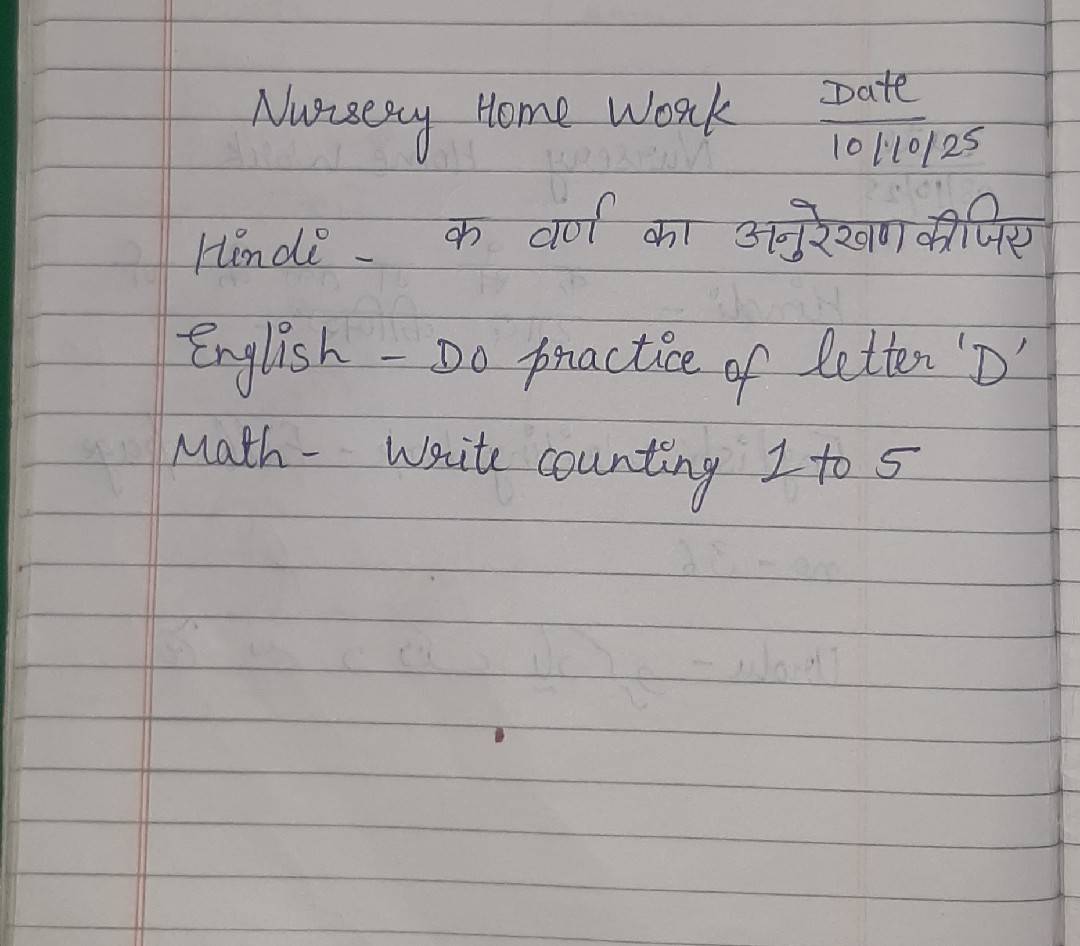 Nursery Home Work Date
10/10/25
Hindi - क वर्ण का अनुरेखण कीजिए
English - Do practice of letter 'D'
Math - Write counting 1 to 5